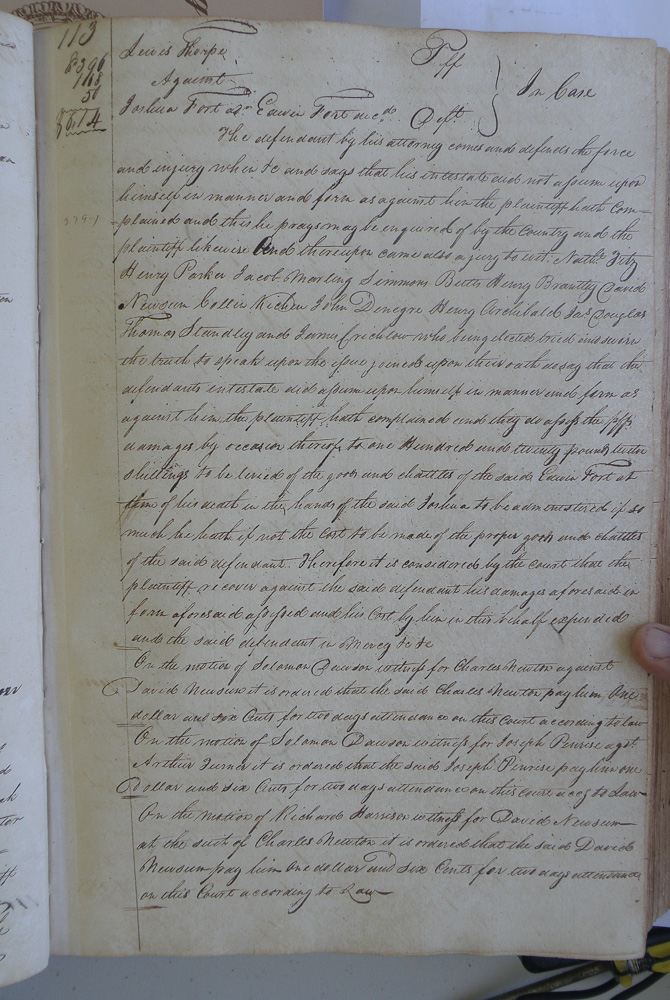 113
Lewis Thorpe Plff
Against } In Case
Joshua Fort adr. Edwin Fort decd. Deft.
The defendant by his attorney comes and defends the force
and injury when &c and says that his intestate did not assume upon
himself in manner and form as against him the plaintiff hath com=
=plained and this he prays may be enquired of by the Country and the
plaintiff likewise And thereupon came also a jury to wit. Nathl.
Henry Parker Jacob Marling Simmons Butts Henry Brantley David
Newsum Collin Kitchen John Denegre Henry Archibald Jas. Douglas
Thomas Standley and James Crichlow who being elected tried and sworn
the truth to speak upon the issue joined upon their oath do say that the
defendants intestate did assume upon himself in manner and form as
against him the plaintiff hath complained and they do assess the plffs
damages by occasion thereof to one Hundred and twenty pounds
shillings to be levied of the goods and chattles of the said Edwin Fort at
time of his death in the hands of the said Joshua to be administered if so
much he hath if not the Cost to be made of the proper goods and chattles
of the said defendant. Therefore it is considered by the court that the
plaintiff recover against the said defendant his damages aforesaid in
form aforesaid assessed and his Cost by him in this behalf expended
and the said defendant in Mercy &c &c
On the motion of Solomon Dawson witness for Charles Newton against
David Newsum it is ordered that the said Charles Newton pay him One
dollar and six Cents for two days attendance on this Court according to law
On the motion of Solomon Dawson witness for Joseph Penrise agst.
Arthur Turner it is ordered that the said Joseph Penrise pay him one
Dollar and six Cents for two days attendance on this court accg to Law
On the motion of Richard Harrison witness for David Newsum
at the suit of Charles Newton it is ordered that the said David
Newsum pay him One dollar and six Cents for two days attendance
on this Court according to Law